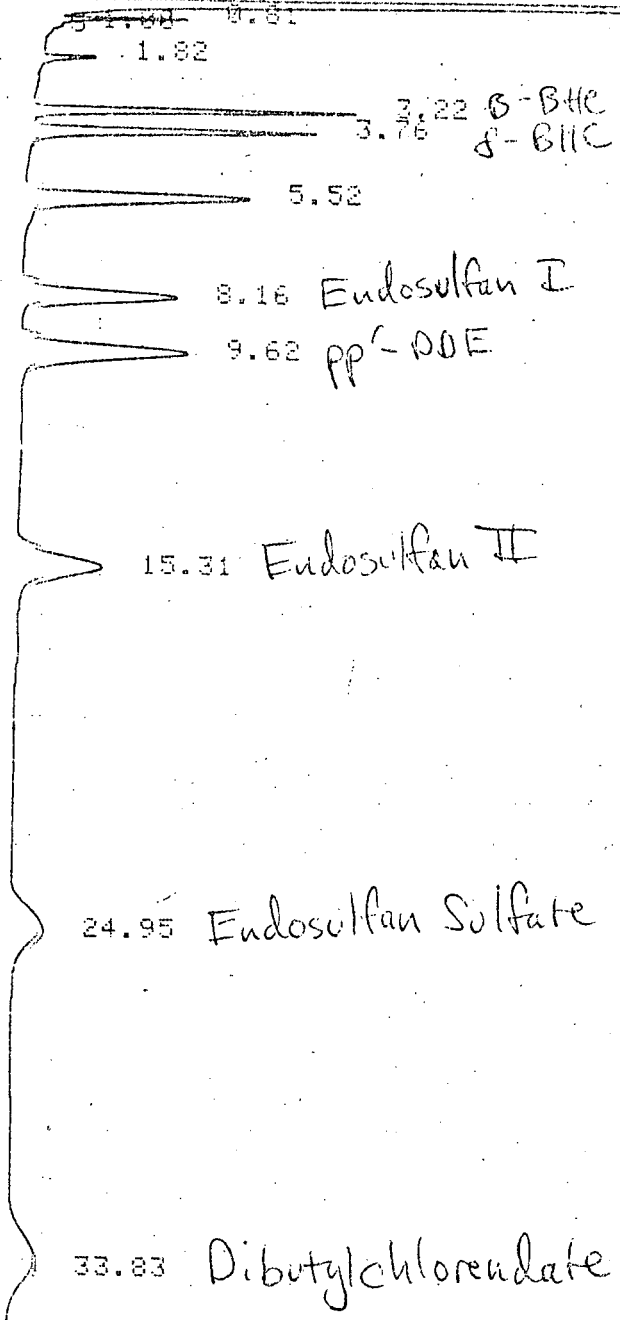 0.61
1.82
3.22 B-BHC
3.76 δ-BHC
5.52
8.16 Endosulfan I
9.62 pp'-DDE
15.31 Endosulfan II
24.95 Endosulfan Sulfate
33.83 Dibutylchlorendate